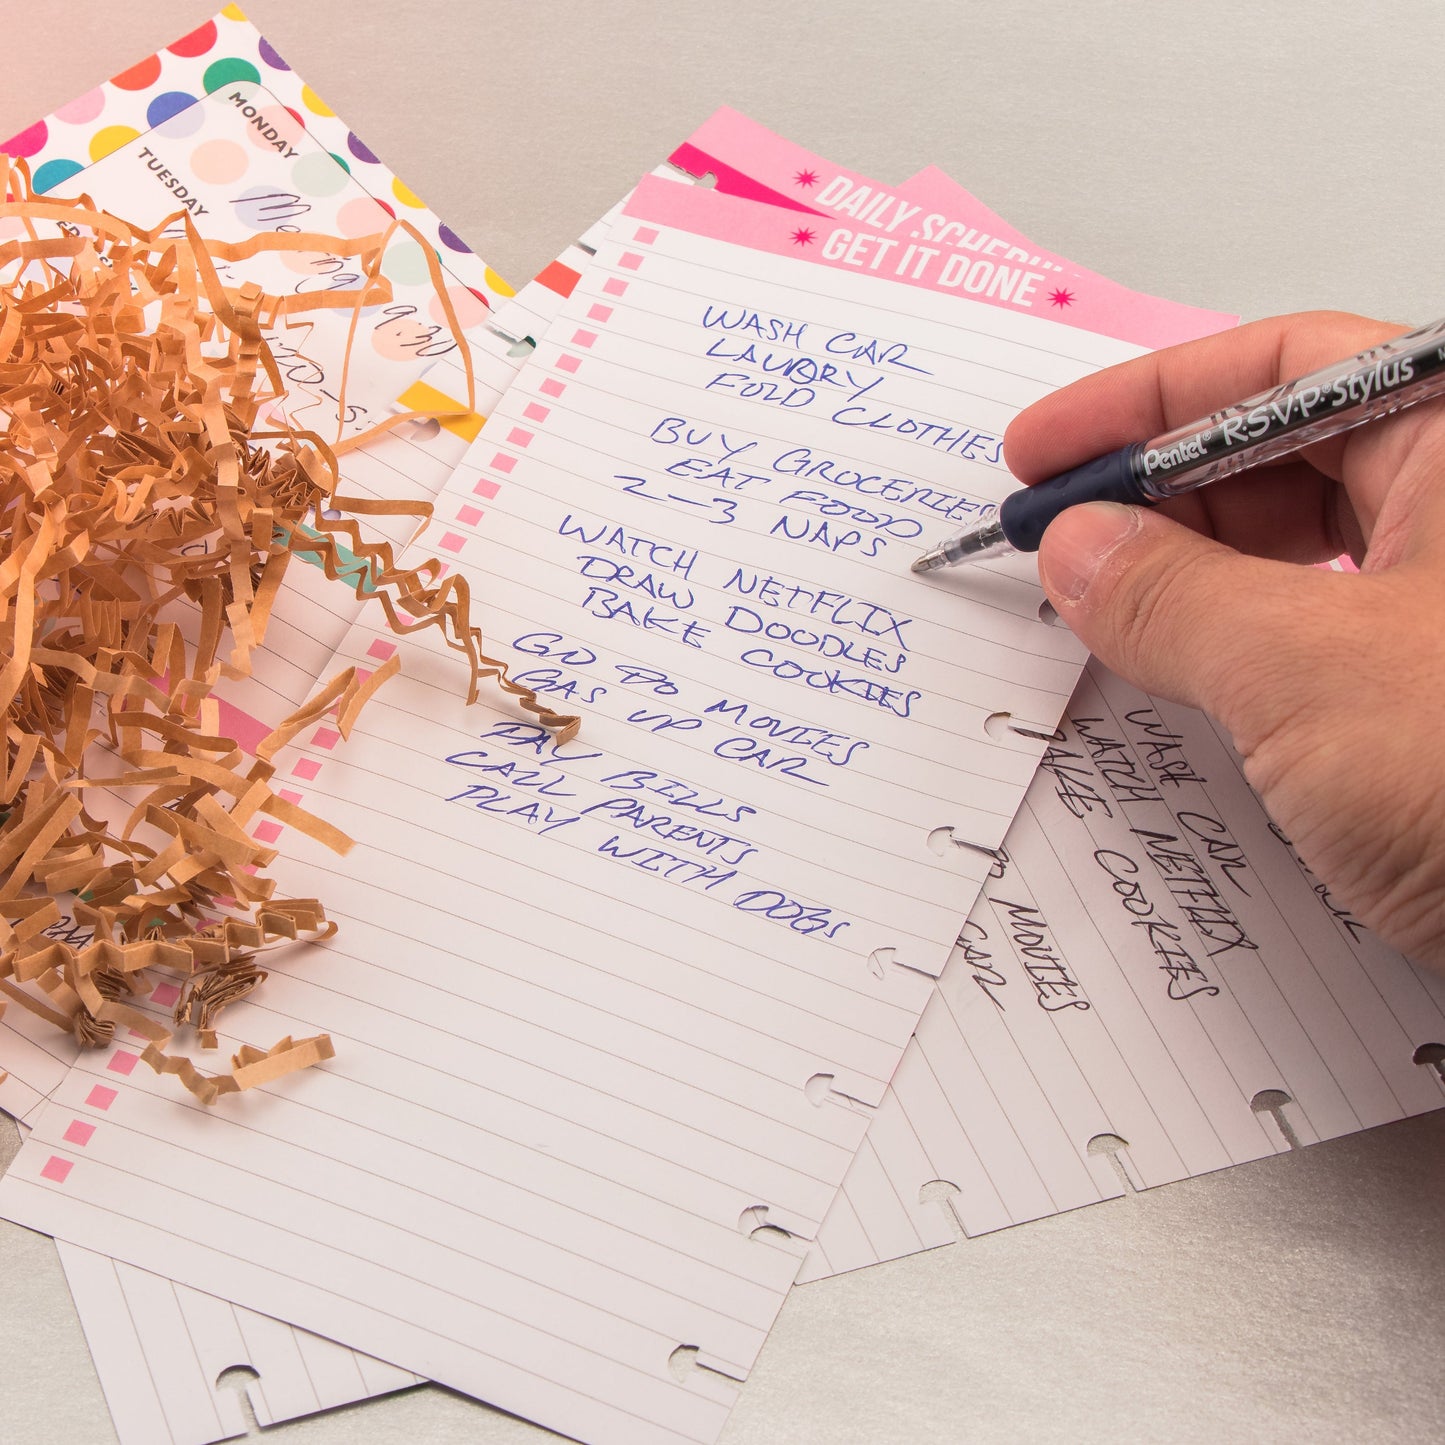 MONDAY
TUESDAY
Meeting
9:30
DAILY SCHEDULE
GET IT DONE
WASH CAR
LAUDRY
FOLD CLOTHES
BUY GROCERIES
EAT FOOD
2-3 NAPS
WATCH NETFLIX
DRAW DOODLES
BAKE COOKIES
GO TO MOVIES
GAS UP CAR
PAY BILLS
CALL PARENTS
PLAY WITH DOGS
Pentel R·S·V·P· Stylus
WASH CAR
WATCH NETFLIX
BAKE COOKIES
MOVIES
CAR